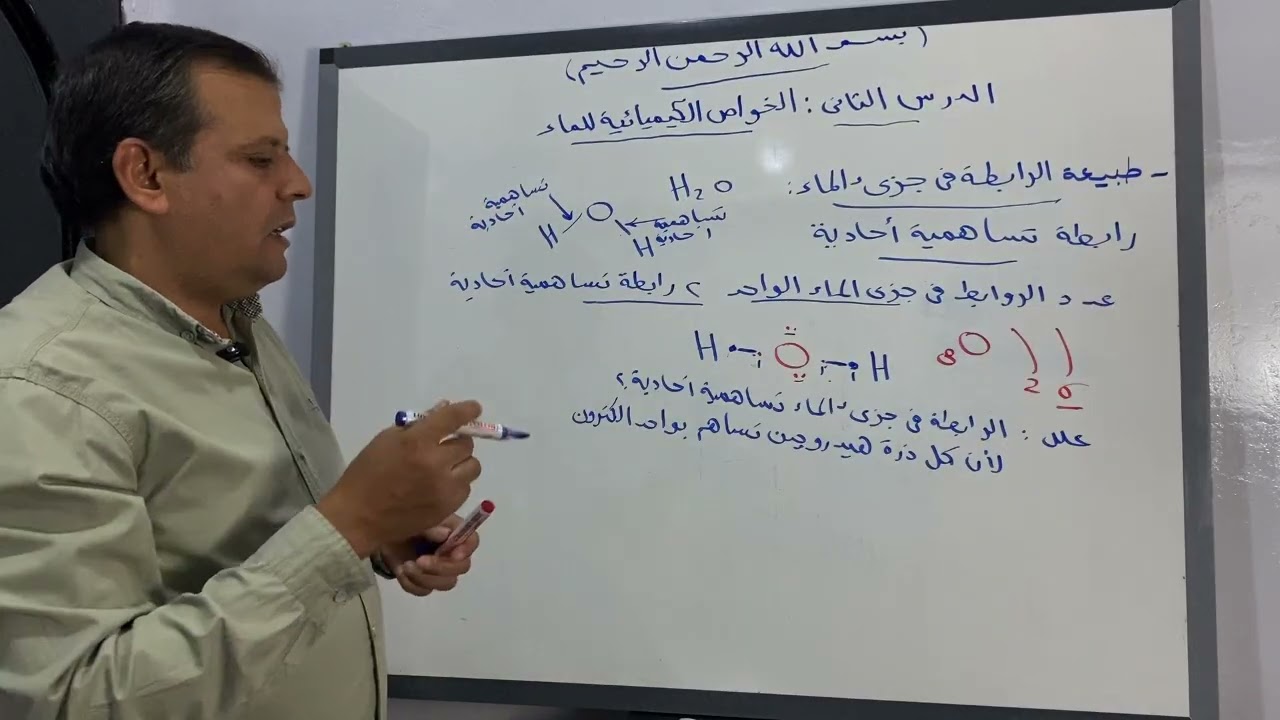 (بسم الله الرحمن الرحيم)
الدرس الثاني : الخواص الكيميائية للماء
- طبيعة الرابطة في جزيء الماء :
H2O
رابطة تساهمية أحادية
تساهمية أحادية
O
H
H
تساهمية أحادية
عدد الروابط في جزئ الماء الواحد ٢ رابطة تساهمية أحادية
H O H
8O 2 6
علل : الرابطة في جزيء الماء تساهمية أحادية ؟
لأن كل ذرة هيدروجين تساهم بواحد الكترون